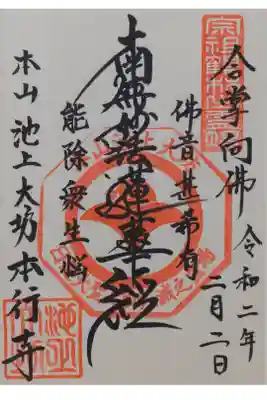 合掌向佛
令和二年
二月二日
佛音甚希有
南無妙法蓮華経
能除衆生悩
本山 池上大坊本行寺